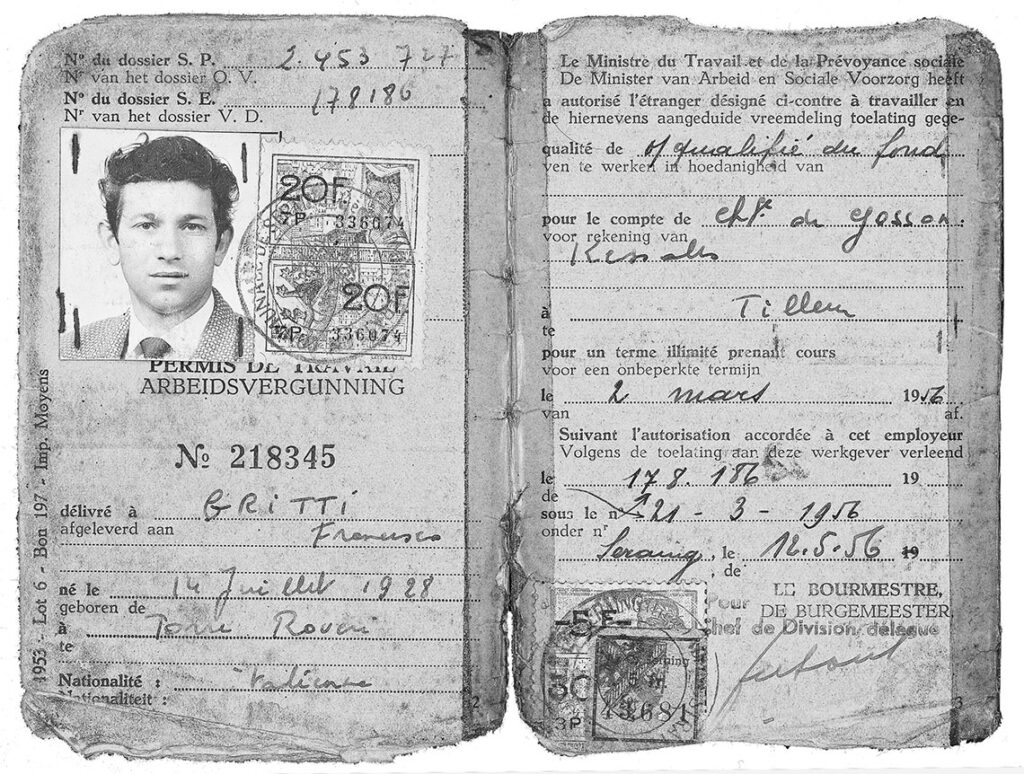 Nº du dossier S. P. 2.453 727
Nr van het dossier O. V.
Nº du dossier S. E. 178186
Nr van het dossier V. D.
20F
7P 336074
20F
7P 336074
PERMIS DE TRAVAIL
ARBEIDSVERGUNNING
Nº 218345
délivré à GRITTI
afgeleverd aan Francesco
né le 14 Juillet 1928
geboren de
à Torre Roveri
te
Nationalité : italienne
Nationaliteit :
2
1953 - Lot 6 - Bon 197 - Imp. Moyens
Le Ministre du Travail et de la Prévoyance sociale
De Minister van Arbeid en Sociale Voorzorg heeft
a autorisé l'étranger désigné ci-contre à travailler en
de hiernevens aangeduide vreemdeling toelating gege-
qualité de o/qualifié du fond
ven te werken in hoedanigheid van
pour le compte de de Gosson.
voor rekening van
Kessales
à Tilleur
te
pour un terme illimité prenant cours
voor een onbeperkte termijn
le 2 mars 1956
van af.
Suivant l'autorisation accordée à cet employeur
Volgens de toelating aan deze werkgever verleend
le 178.186 19
de
sous le nº 21 - 3 - 1956
onder nr
Seraing, le 12.5.56 19
, de
LE BOURMESTRE,
Pour DE BURGEMEESTER,
Chef de Division délégué
5F
3P
43681
3